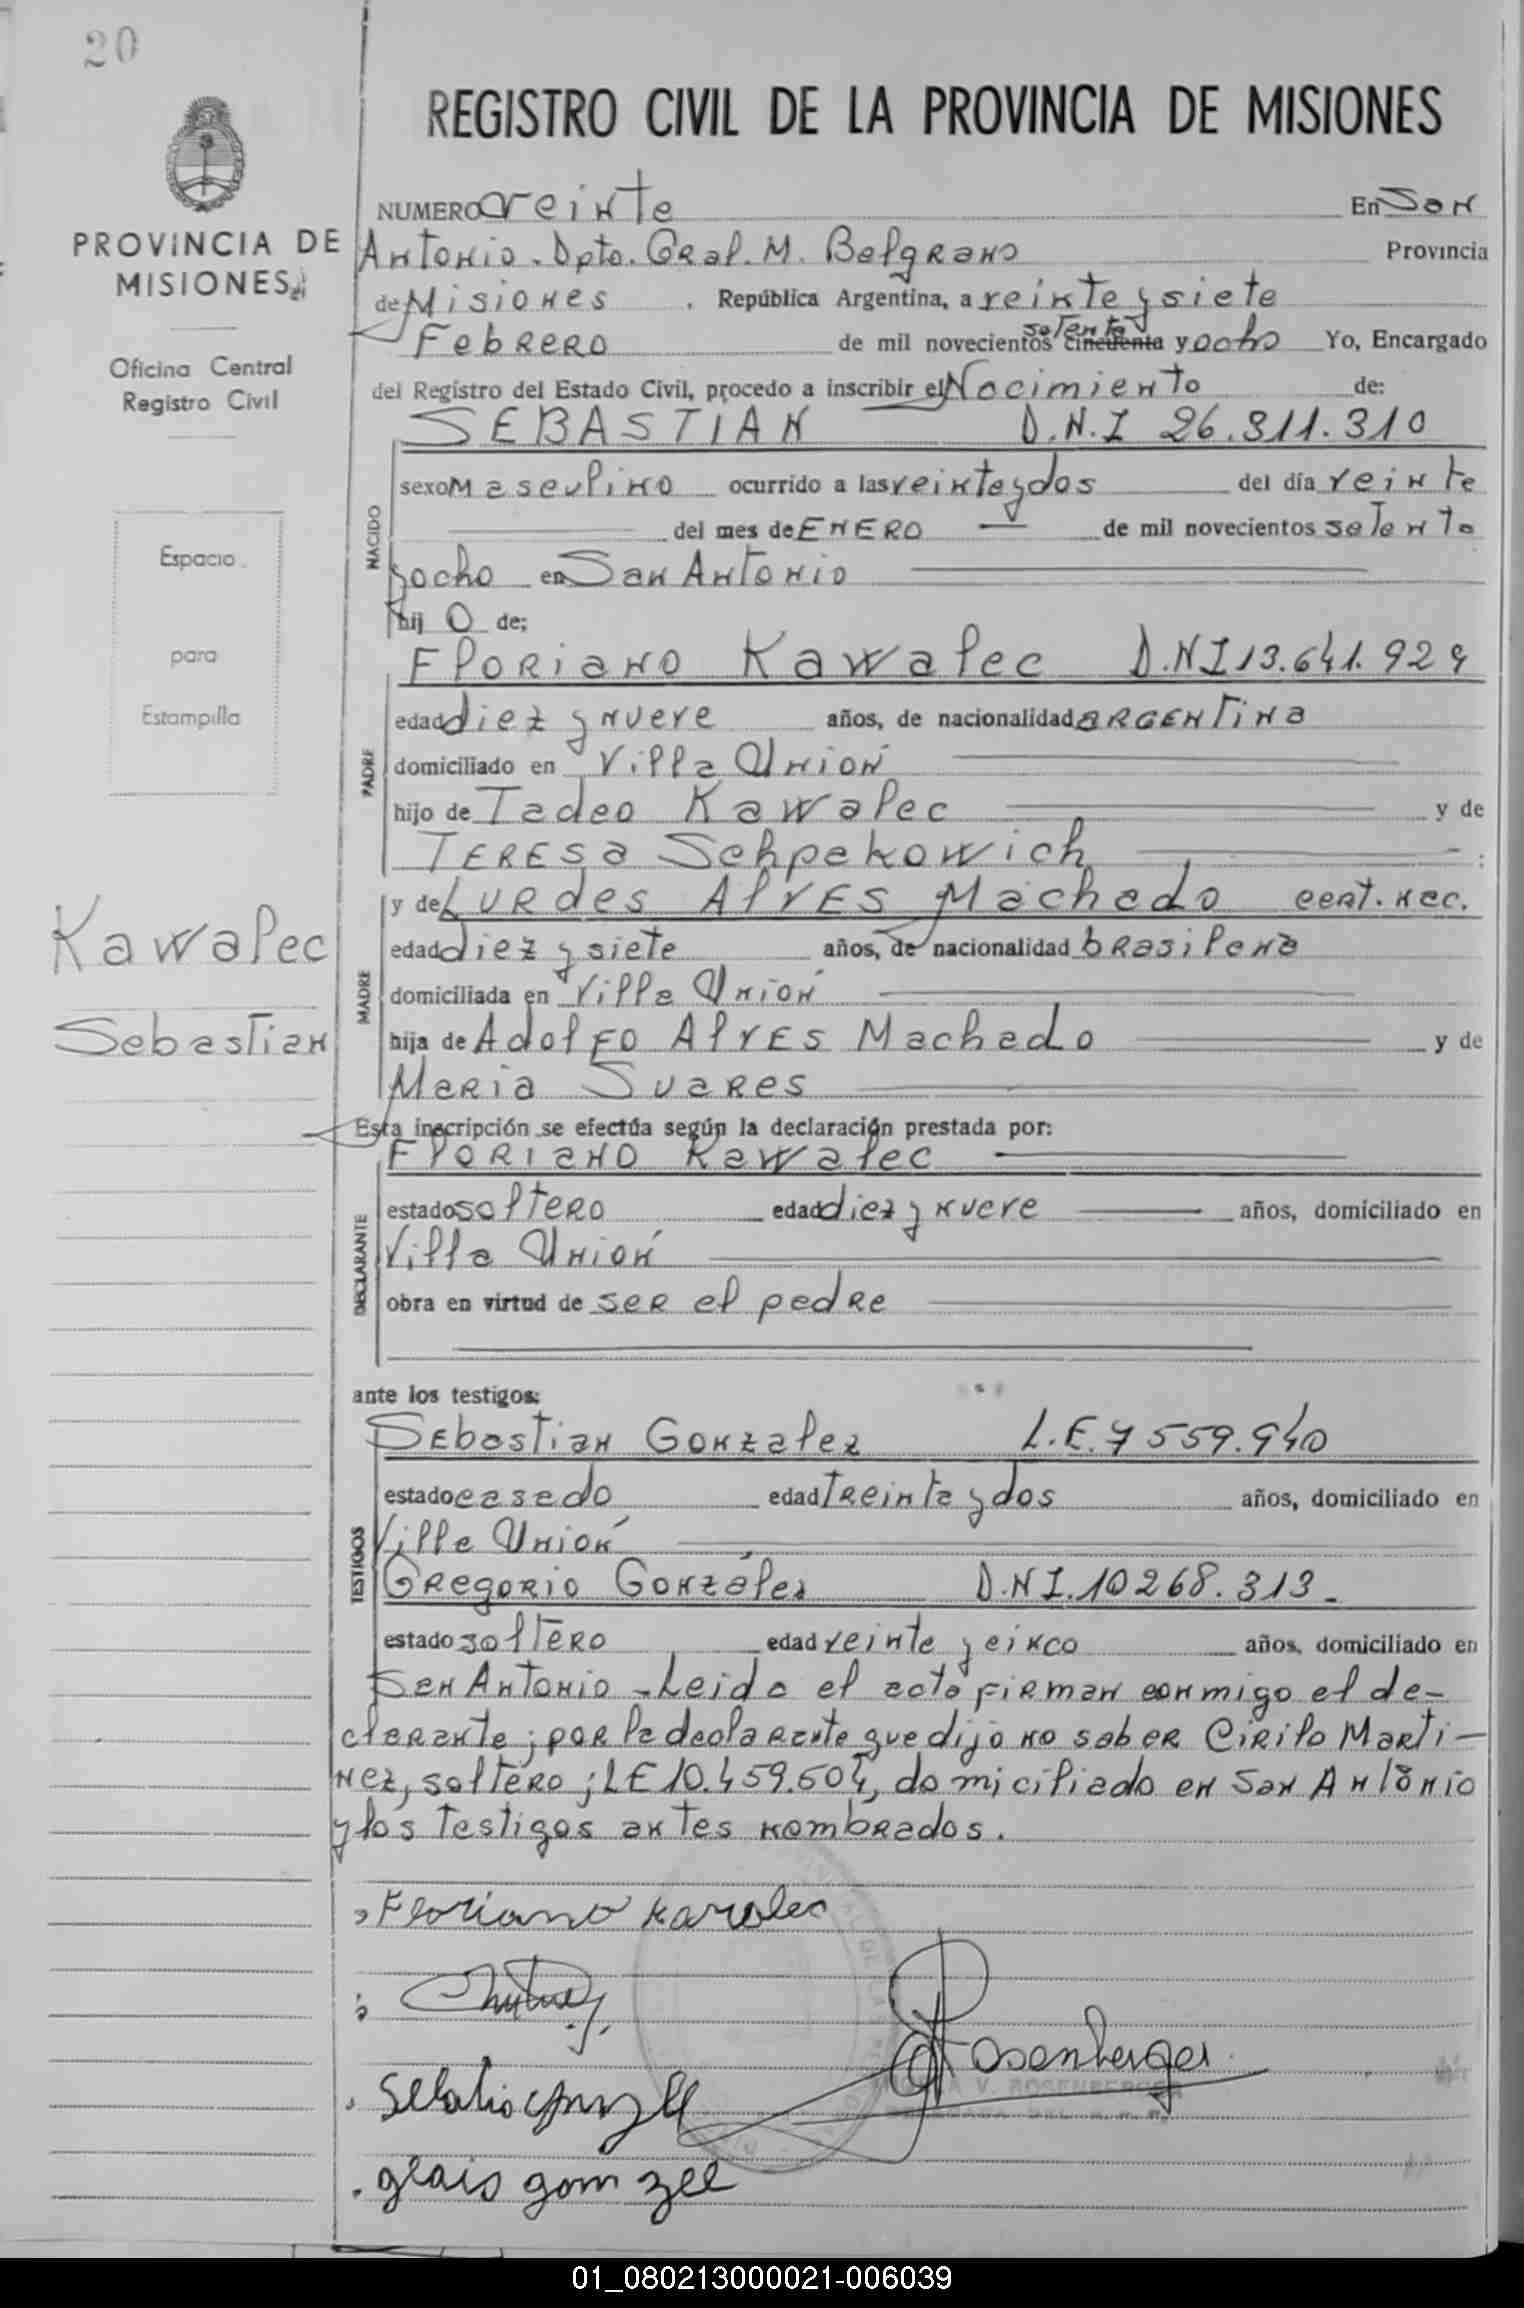 20
REGISTRO CIVIL DE LA PROVINCIA DE MISIONES
PROVINCIA DE
MISIONES
Oficina Central
Registro Civil
Espacio
para
Estampilla
Kawalec
Sebastian
NUMERO veinte En San
Antonio. Dpto. Gral. M. Belgrano Provincia
de Misiones . República Argentina, a veinte y siete
Febrero de mil novecientos setenta cincuenta y ocho Yo, Encargado
del Registro del Estado Civil, procedo a inscribir el Nacimiento de:
SEBASTIAN D.N.I 26.311.310
NACIDO
sexo masculino ocurrido a las veinte y dos del día veinte
del mes de ENERO de mil novecientos setenta
y ocho en San Antonio
hij o de;
Floriano Kawalec D.N.I 13.641.924
PADRE
edad diez y nueve años, de nacionalidad argentina
domiciliado en Villa Unión
hijo de Tadeo Kawalec y de
Teresa Schpekowich :
y de Lurdes Alves Machado cert. nac.
MADRE
edad diez y siete años, de nacionalidad brasilena
domiciliada en Villa Unión
hija de Adolfo Alves Machado y de
Maria Suares
Esta inscripción se efectúa según la declaración prestada por:
Floriano Kawalec
DECLARANTE
estado soltero edad diez y nueve años, domiciliado en
Villa Unión
obra en virtud de ser el padre
ante los testigos:
Sebastian Gonzalez L.E. 7 559.940
TESTIGOS
estado casado edad treinta y dos años, domiciliado en
Villa Unión
Gregorio González D.N I. 10 268.313.
estado soltero edad veinte y cinco años, domiciliado en
San Antonio - Leida el acta firman conmigo el de-
clarante ; por la declarante que dijo no saber Cirilo Marti-
nez, soltero ; LE 10.459.504, domiciliado en San Antonio
y los testigos antes nombrados.
Floriano Kawalec
Rosenberger
V. ROSENBERGER
01_080213000021-006039